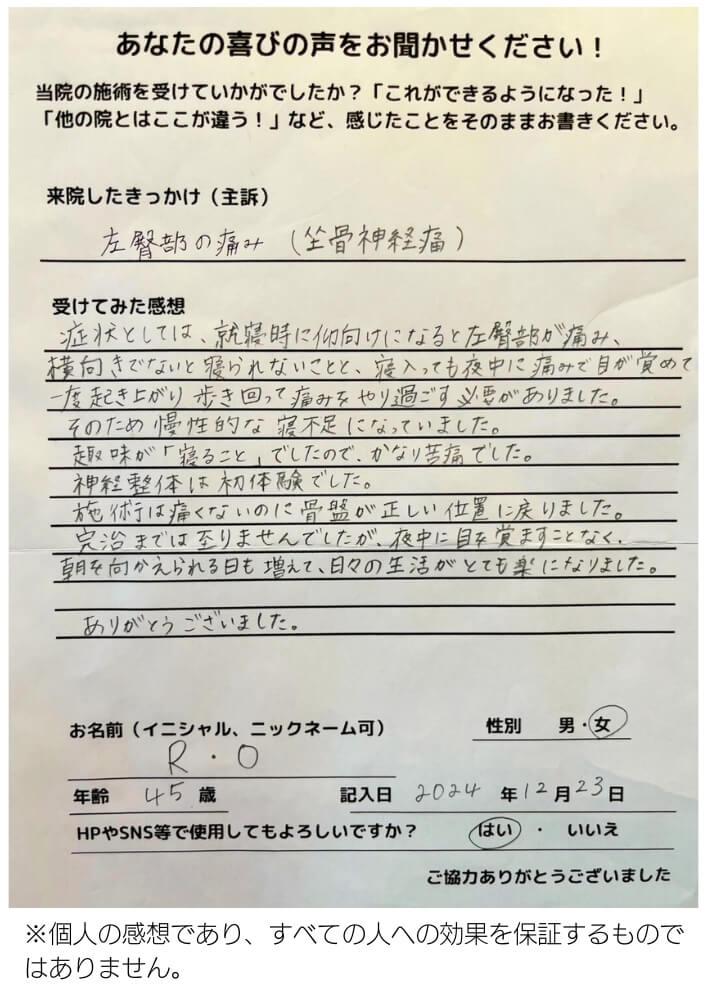 あなたの喜びの声をお聞かせください！
当院の施術を受けていかがでしたか？「これができるようになった！」
「他の院とはここが違う！」など、感じたことをそのままお書きください。
来院したきっかけ（主訴）
左臀部の痛み（坐骨神経痛）
受けてみた感想
症状としては、就寝時に仰向けになると左臀部が痛み、
横向きでないと寝られないことと、寝入っても夜中に痛みで目が覚めて
一度起き上がり歩き回って痛みをやり過ごす必要がありました。
そのため慢性的な寝不足になっていました。
趣味が「寝ること」でしたので、かなり苦痛でした。
神経整体は初体験でした。
施術は痛くないのに骨盤が正しい位置に戻りました。
完治までは至りませんでしたが、夜中に目を覚ますことなく、
朝を向かえられる日も増えて、日々の生活がとても楽になりました。
ありがとうございました。
お名前（イニシャル、ニックネーム可） 性別 男・女
R・O
年齢 45歳 記入日 2024年12月23日
HPやSNS等で使用してもよろしいですか？ はい・いいえ
ご協力ありがとうございました
※個人の感想であり、すべての人への効果を保証するもので
はありません。